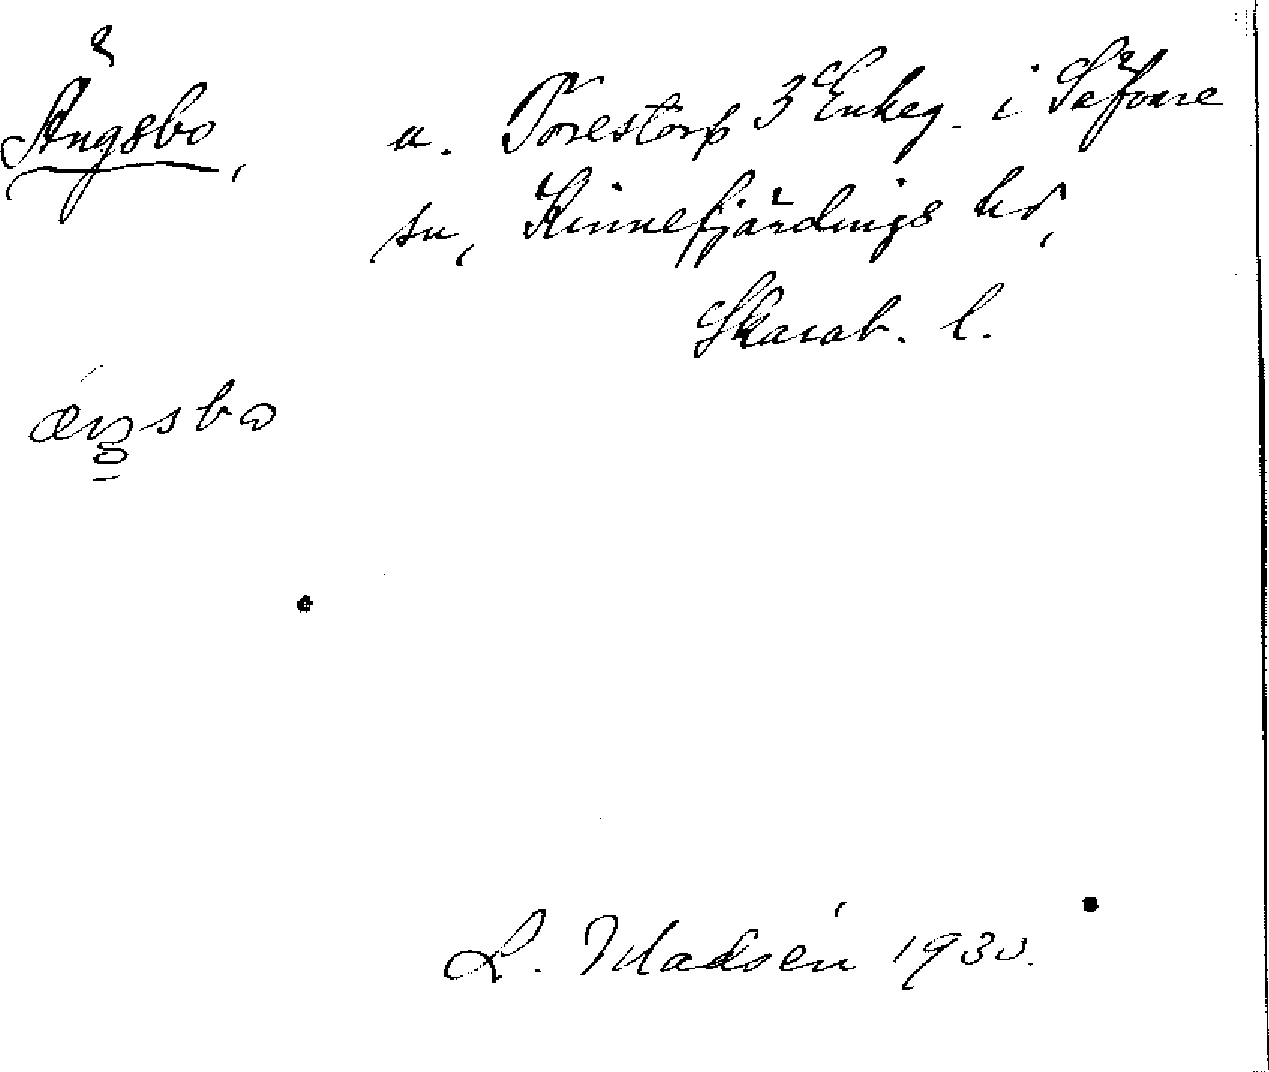 Ängsbo, a. Torestorp 3 Enheg. i Sävare
sn, Kinnefjärdings hd,
Skarab. l.
æŋsbo
L. Madsén 1930.